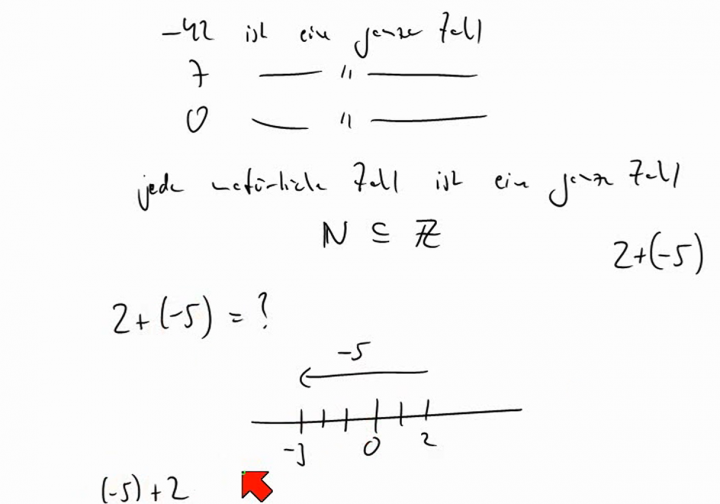 -42 ist eine ganze Zahl
7 — " —
0 — " —
jede natürliche Zahl ist eine ganze Zahl
ℕ ⊆ ℤ
2+(-5)
2+(-5) = ?
-5
-3 0 2
(-5)+2